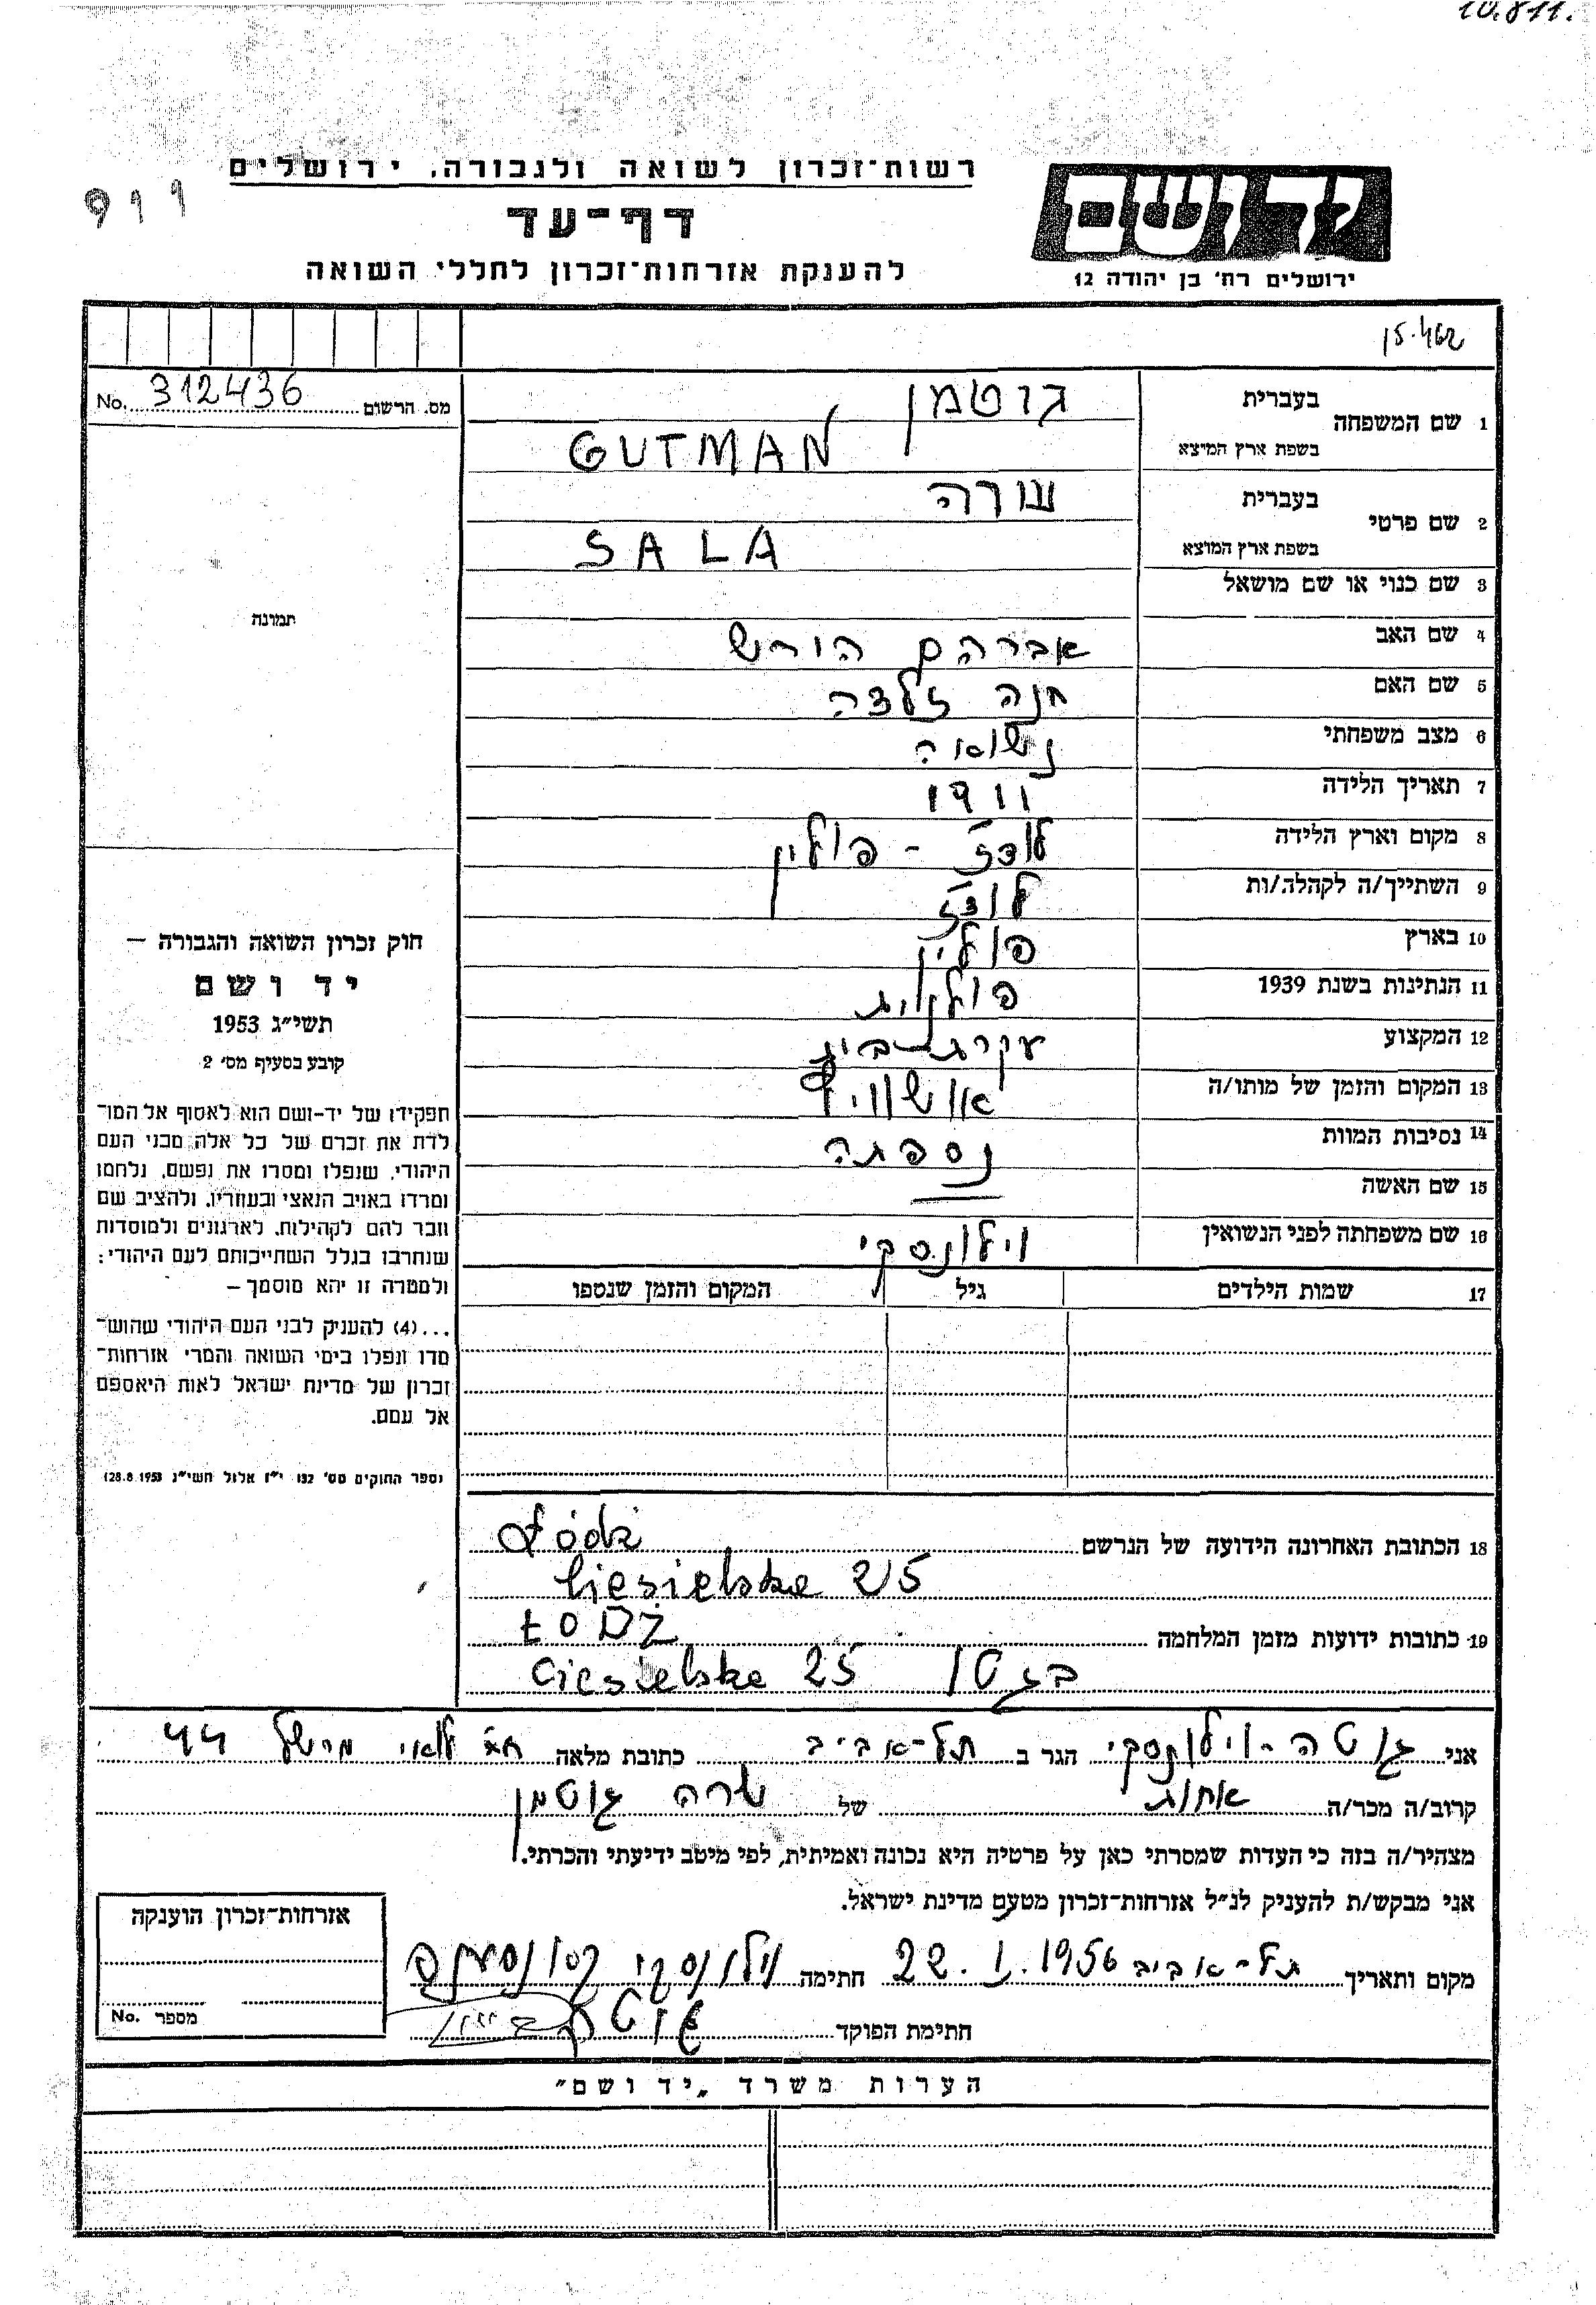 10.811.
רשות־זכרון לשואה ולגבורה, ירושלים
דף־עד
להענקת אזרחות־זכרון לחללי השואה
ידושם
ירושלים רח' בן יהודה 12
מס. הרשום No. 312436
1 שם המשפחה
בעברית גוטמן
בשפת ארץ המוצא GUTMAN
2 שם פרטי
בעברית שרה
בשפת ארץ המוצא SALA
3 שם כנוי או שם מושאל
4 שם האב אברהם הירש
5 שם האם חנה זלדה
6 מצב משפחתי נשואה
7 תאריך הלידה 1911
8 מקום וארץ הלידה לודז' - פולין
9 השתייך/ה לקהלה/ות לודז'
10 בארץ פולין
11 הנתינות בשנת 1939 פולנית
12 המקצוע עקרת-בית
13 המקום והזמן של מותו/ה אושוויץ
14 נסיבות המוות נספתה
15 שם האשה
16 שם משפחתה לפני הנשואין וילונסקי
17 שמות הילדים גיל המקום והזמן שנספו
תמונה
חוק זכרון השואה והגבורה –
יד ושם
תשי"ג 1953
קובע בסעיף מס' 2
תפקידו של יד-ושם הוא לאסוף אל המו־
לדת את זכרם של כל אלה מבני העם
היהודי, שנפלו ומסרו את נפשם, נלחמו
ומרדו באויב הנאצי ובעוזריו, ולהציב שם
וזכר להם לקהילות, לארגונים ולמוסדות
שנחרבו בגלל השתייכותם לעם היהודי;
ולמטרה זו יהא מוסמך –
...(4) להעניק לבני העם היהודי שהוש־
מדו ונפלו בימי השואה והמרי אזרחות־
זכרון של מדינת ישראל לאות היאספם
אל עמם.
(ספר החוקים מס' 132 י"ז אלול תשי"ג 28.8.1953)
18 הכתובת האחרונה הידועה של הנרשם Łódź
Ciesielska 25
19 כתובות ידועות מזמן המלחמה ŁODŹ
בגטו Ciesielska 25
אני גוטה-וילונסקי הגר ב תל-אביב כתובת מלאה 44
קרוב/ה מכר/ה אחות של שרה גוטמן
מצהיר/ה בזה כי העדות שמסרתי כאן על פרטיה היא נכונה ואמיתית, לפי מיטב ידיעתי והכרתי.
אני מבקש/ת להעניק לנ"ל אזרחות־זכרון מטעם מדינת ישראל.
מקום ותאריך תל-אביב 22.I.1956 חתימה וילונסקי
חתימת הפוקד
אזרחות־זכרון הוענקה
מספר No.
הערות משרד "יד ושם"